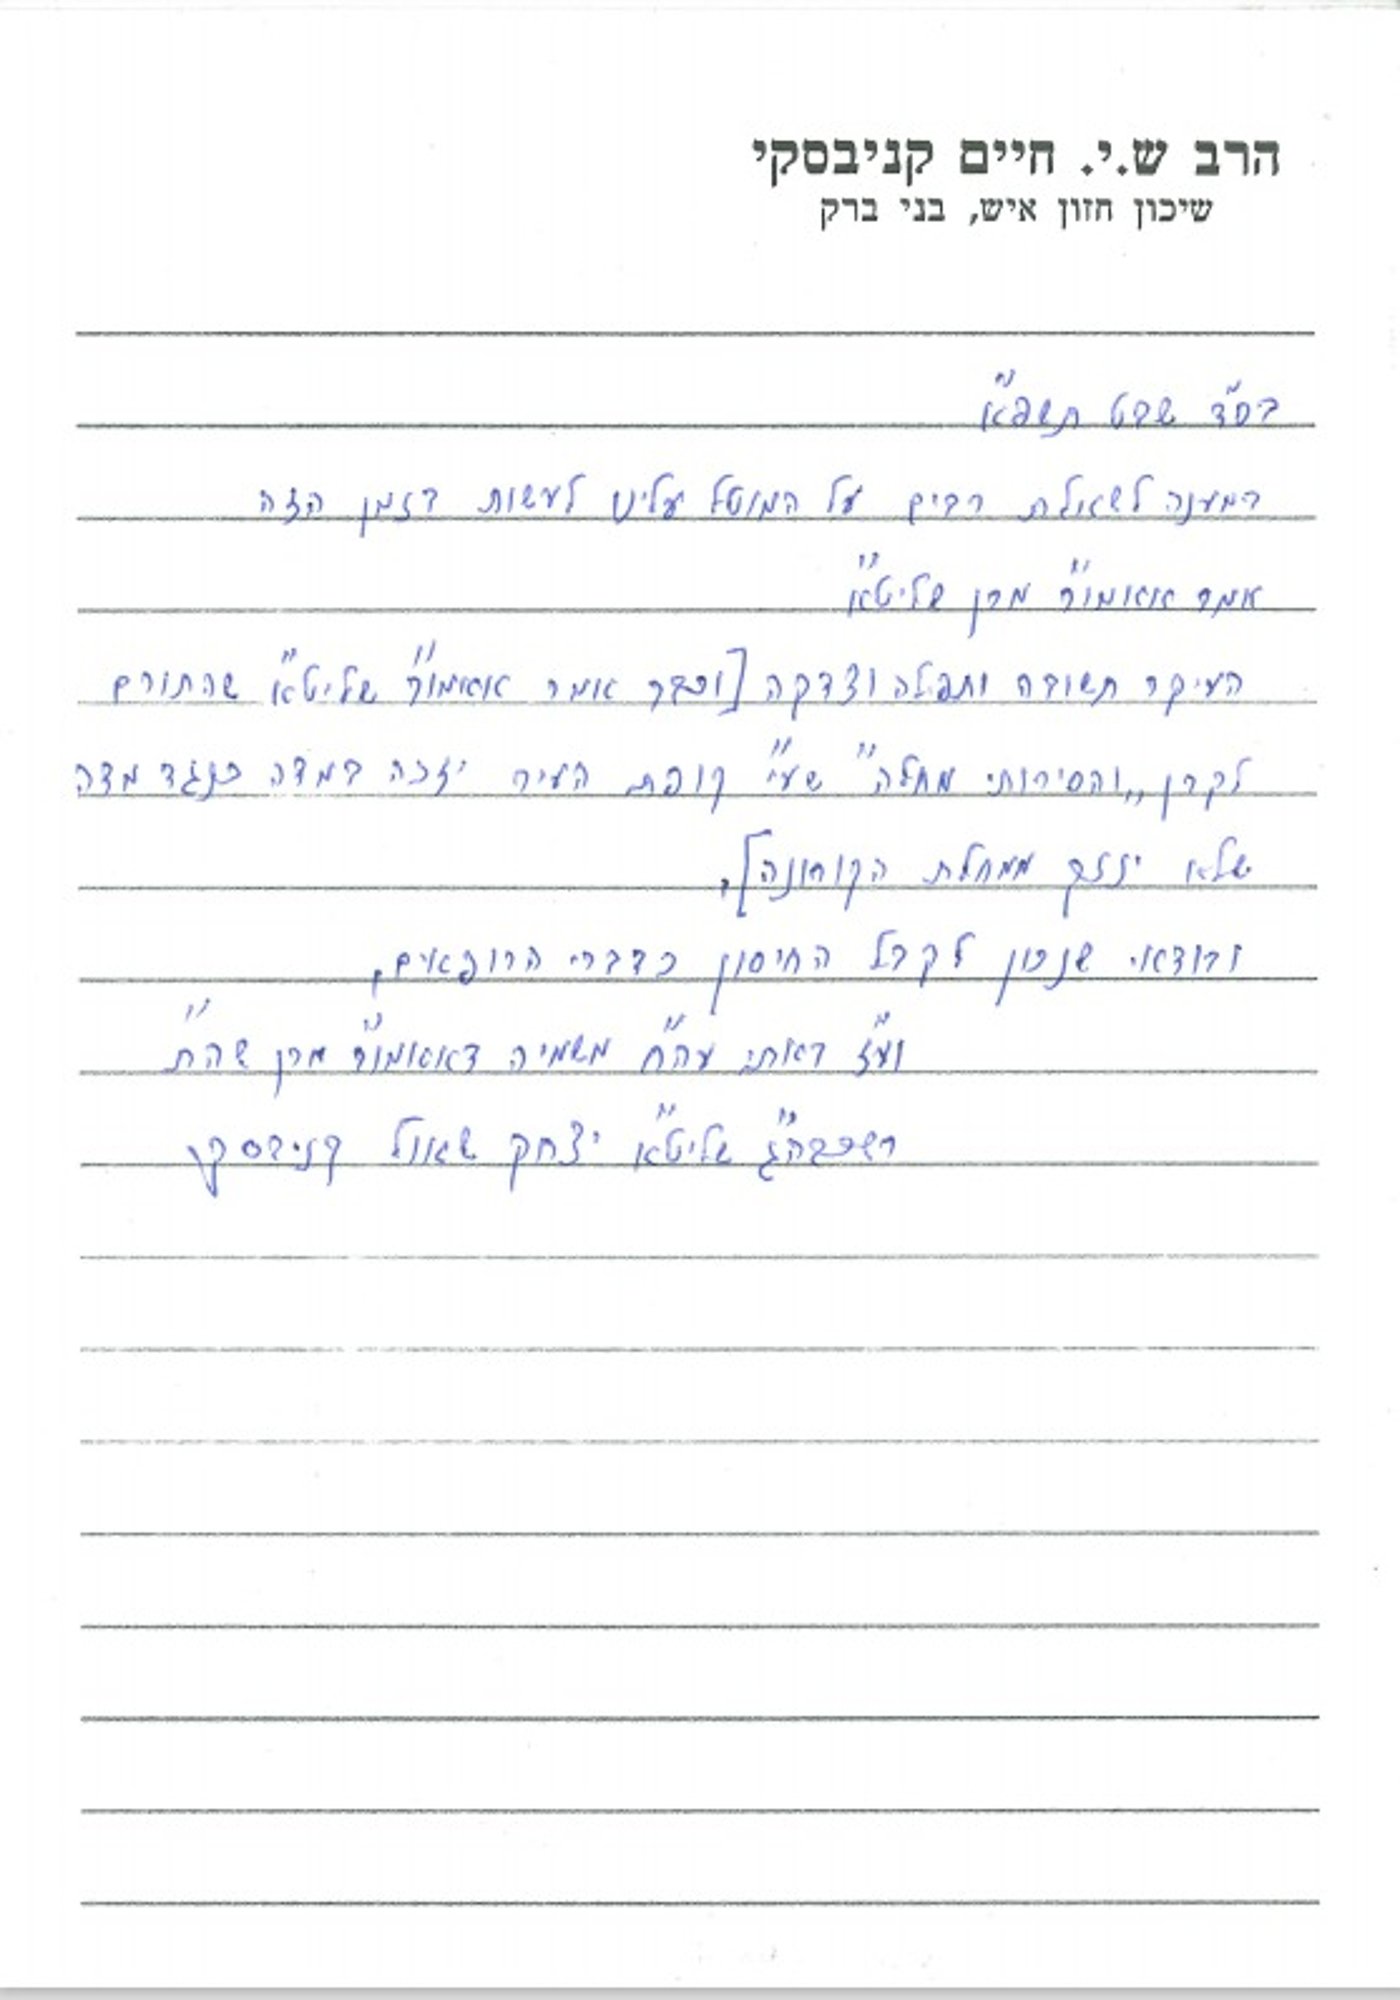 הרב ש.י. חיים קניבסקי
שיכון חזון איש, בני ברק
בס"ד שבט תשפ"א
במענה לשאולת רבים על המוטל עלינו לעשות בזמן הזה
אמר אאמו"ר מרן שליט"א
העיקר תשובה ותפילה וצדקה [וכבר אמר אאמו"ר שליט"א שהתורם
לקרן „והסירותי מחלה" שע"י קופת העיר יזכה במדה כנגד מדה
שלא ינזק ממחלת הקורונה].
ובודאי שנכון לקבל החיסון כדברי הרופאים.
וע"ז באתי עה"ח משמיה דאאמו"ר מרן שה"ת
רשכבה"ג שליט"א יצחק שאול קניבסקי